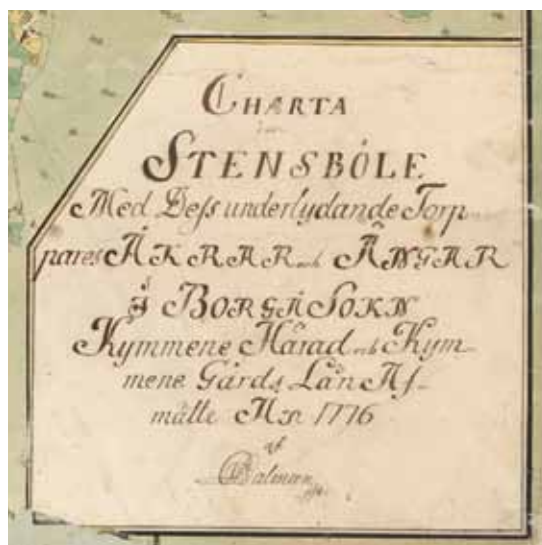 CHÆRTA
öfver
STENSBÖLE
Med Dess underlydande Torp-
pares ÅKRAR och ÄNGAR
I BORGÅ SOKN
Kymmene Härad och Kym-
mene Gårds Län Af-
mätte Åhr 1776
af